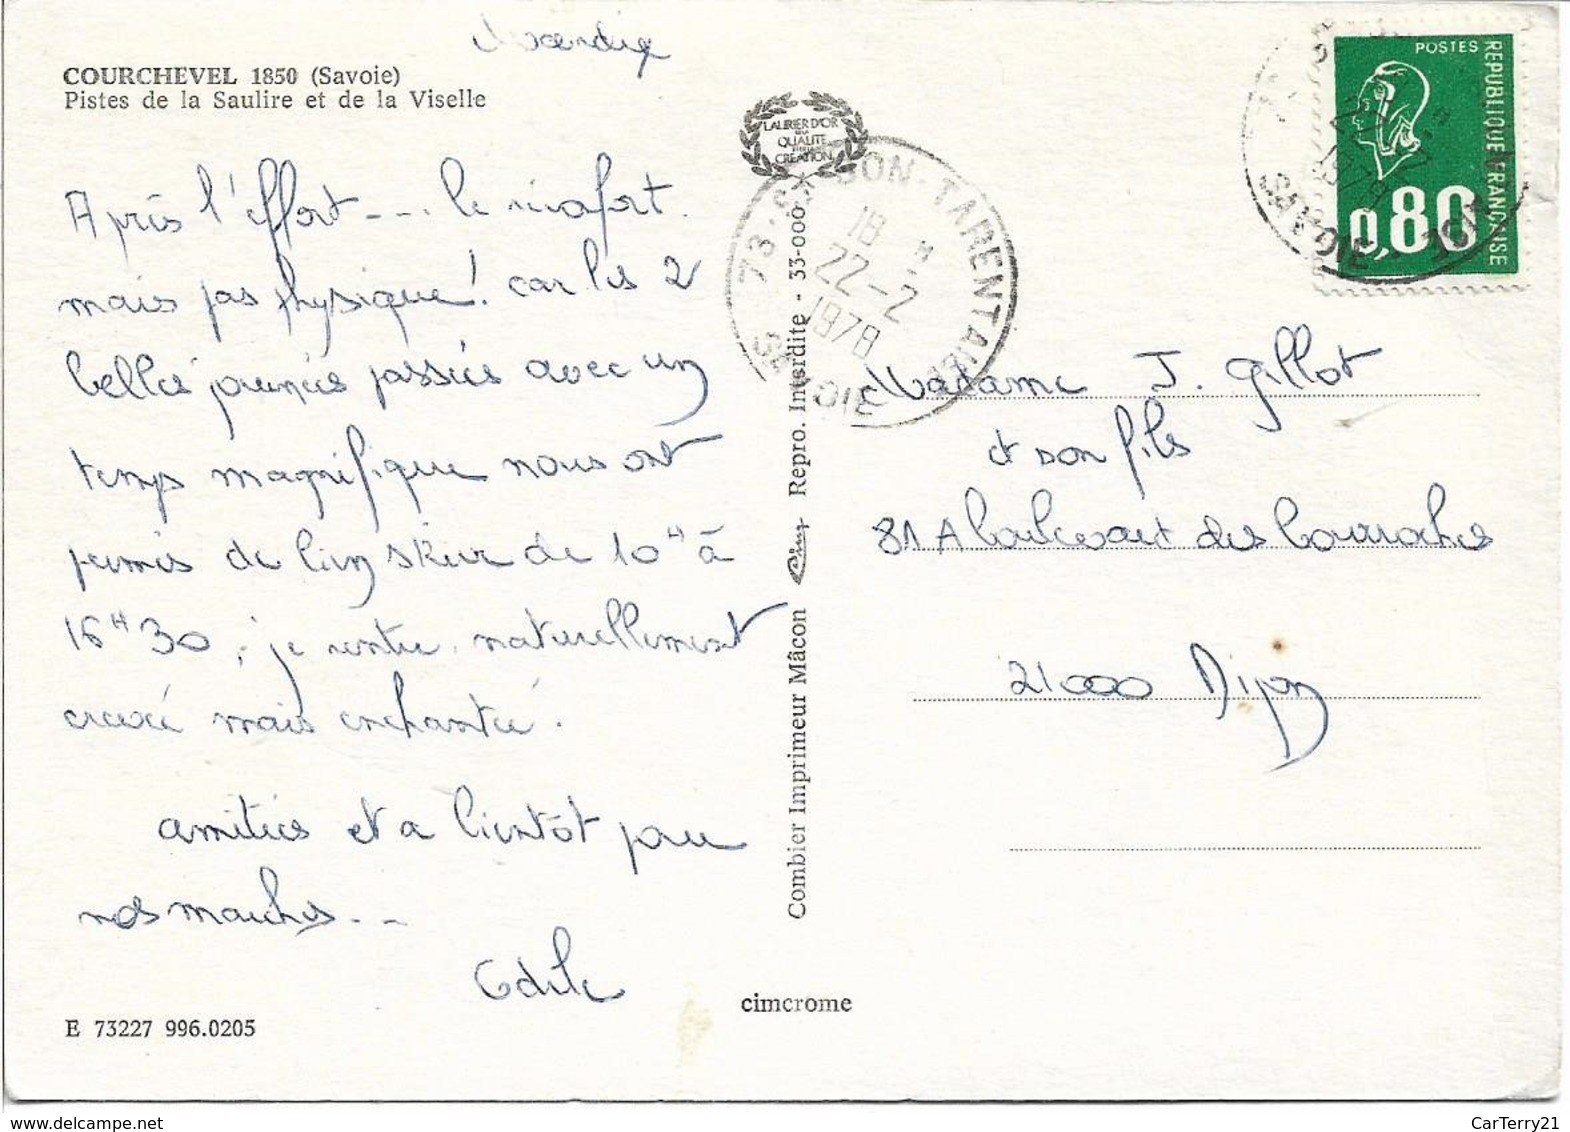 Mercredi
COURCHEVEL 1850 (Savoie)
Pistes de la Saulire et de la Viselle
Après l'effort --- le réconfort.
mais pas physique! car les 2
belles journées passées avec un
temps magnifique nous ont
permis de bien skier de 10H à
16H30, je rentre naturellement
crevée mais enchantée.
amitiés et a bientôt pour
nos marches --
Odile
E 73227 996.0205
LAURIER D'OR
DE LA
QUALITE
CREATION
73-ST-BON-TARENTAISE
18 H
22-2
1978
SAVOIE
Combier Imprimeur Mâcon Cim Repro. Interdite - 33-000
cimcrome
POSTES
REPUBLIQUE FRANÇAISE
0,80
22-2
1978
SAVOIE
Madame J. Gillot
et son fils
81A boulevard des Gourroches
21000 Dijon
www.delcampe.net
CarTerry21